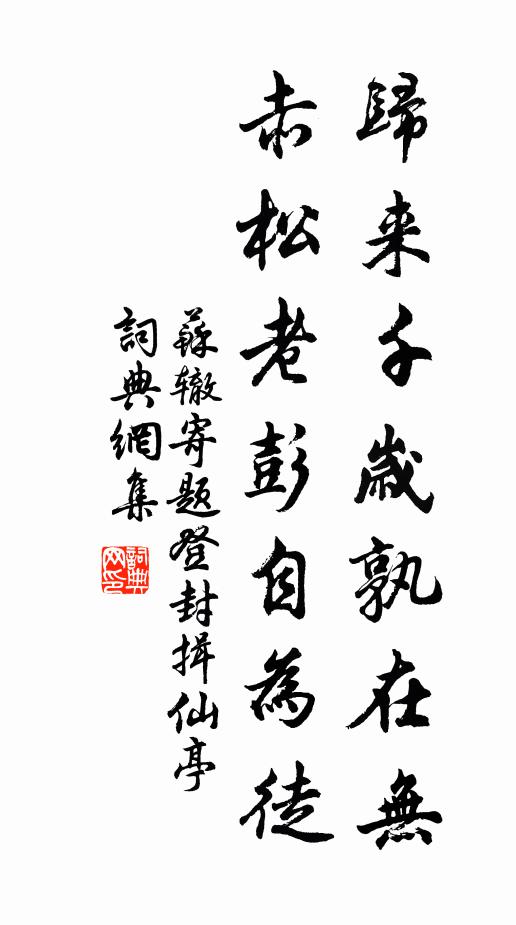 歸来千歲孰在無
赤松老彭自為徒
蘇辙寄题登封揖仙亭
詞典網集
詞典网印